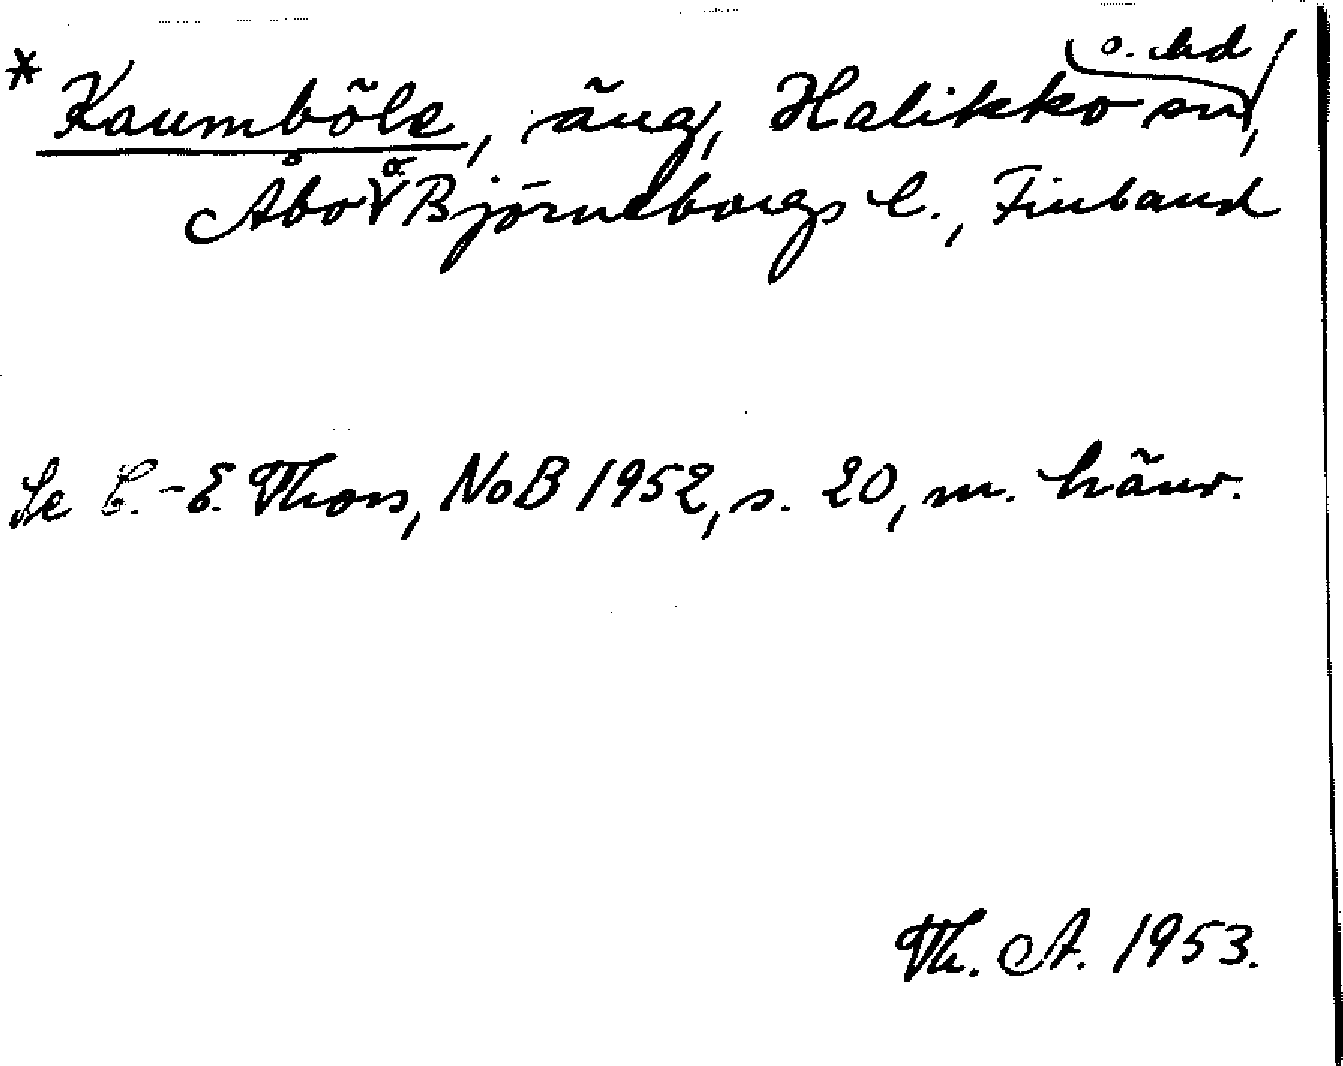 * Kaumböle, äng, Halikko sn o. hd,
Åbo o. Björneborgs l., Finland
Se C.-E. Thors, NoB 1952, s. 20, m. hänv.
Th. A. 1953.